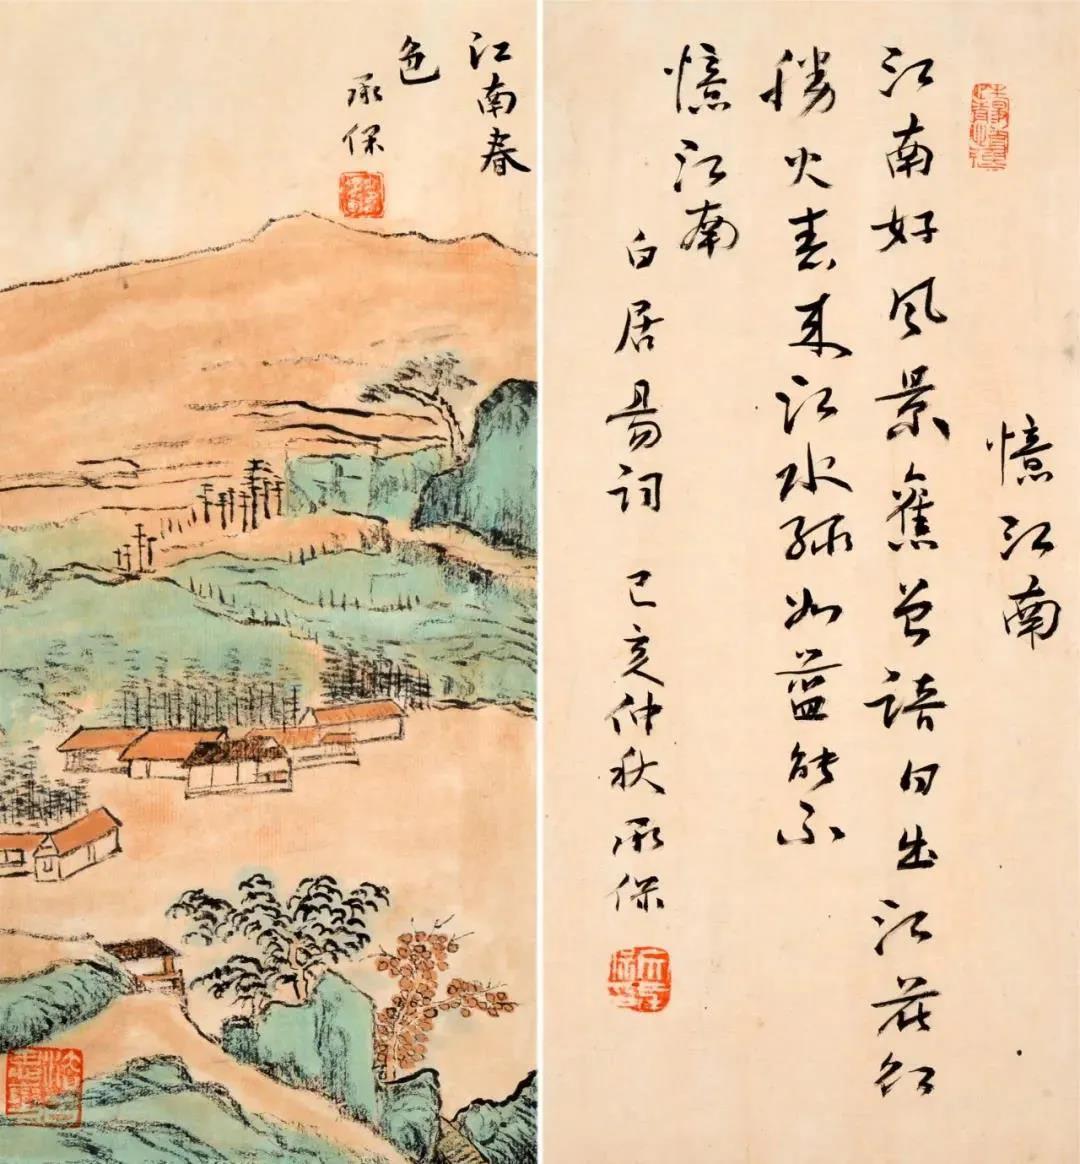 江南春
色
承保
憶江南
江南好风景舊曾諳日出江花红
勝火春来江水绿如藍能不
憶江南
白居易词 己亥仲秋 承保